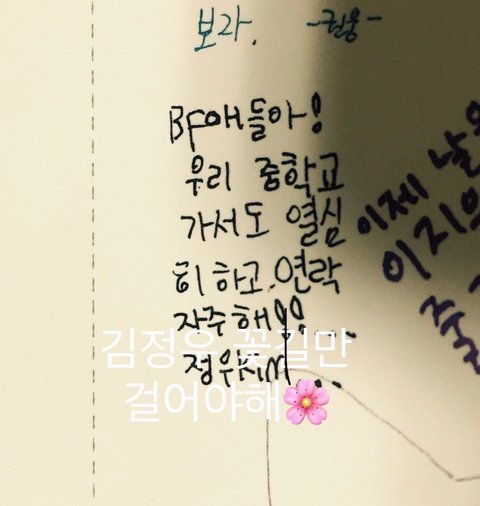 보라. -권용-
BF애들아!
우리 중학교
가서도 열심
히 하고. 연락
자주해!!...
정우KIM...
김정우 꽃길만
걸어야해🌸
이제 날
이지의